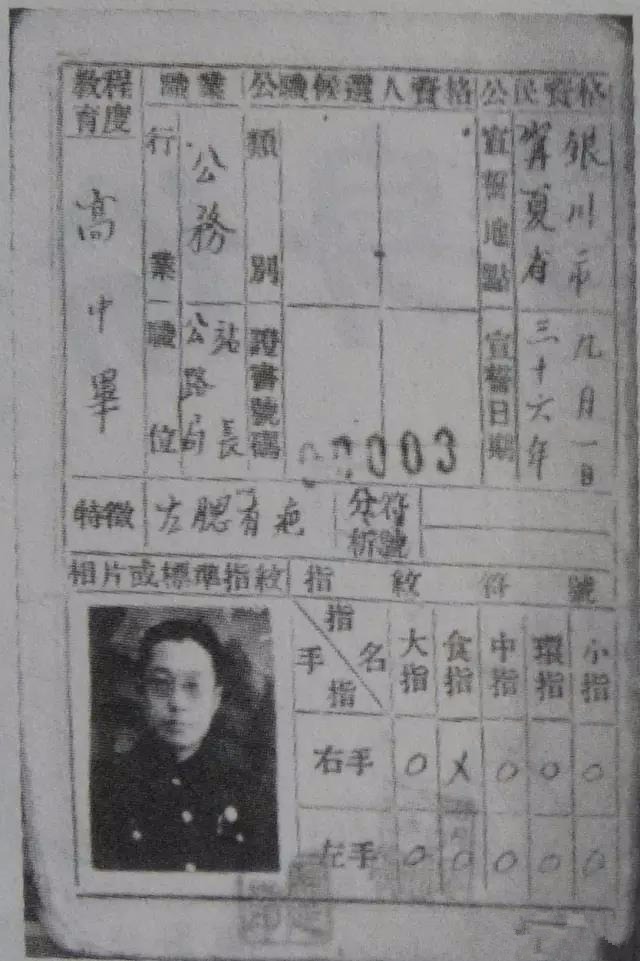 教育程度
職業
公職候選人資格
公民資格
高中畢
行業
公務
類別
宣誓地點
寧夏省銀川市
職位
公路局站長
證書號碼
003
宣誓日期
三十六年九月一日
特徵
左腮有疤
分析符號
相片或標準指紋
指紋符號
指名
手指
大指
食指
中指
環指
小指
右手 O X O O O
左手 O O O O O